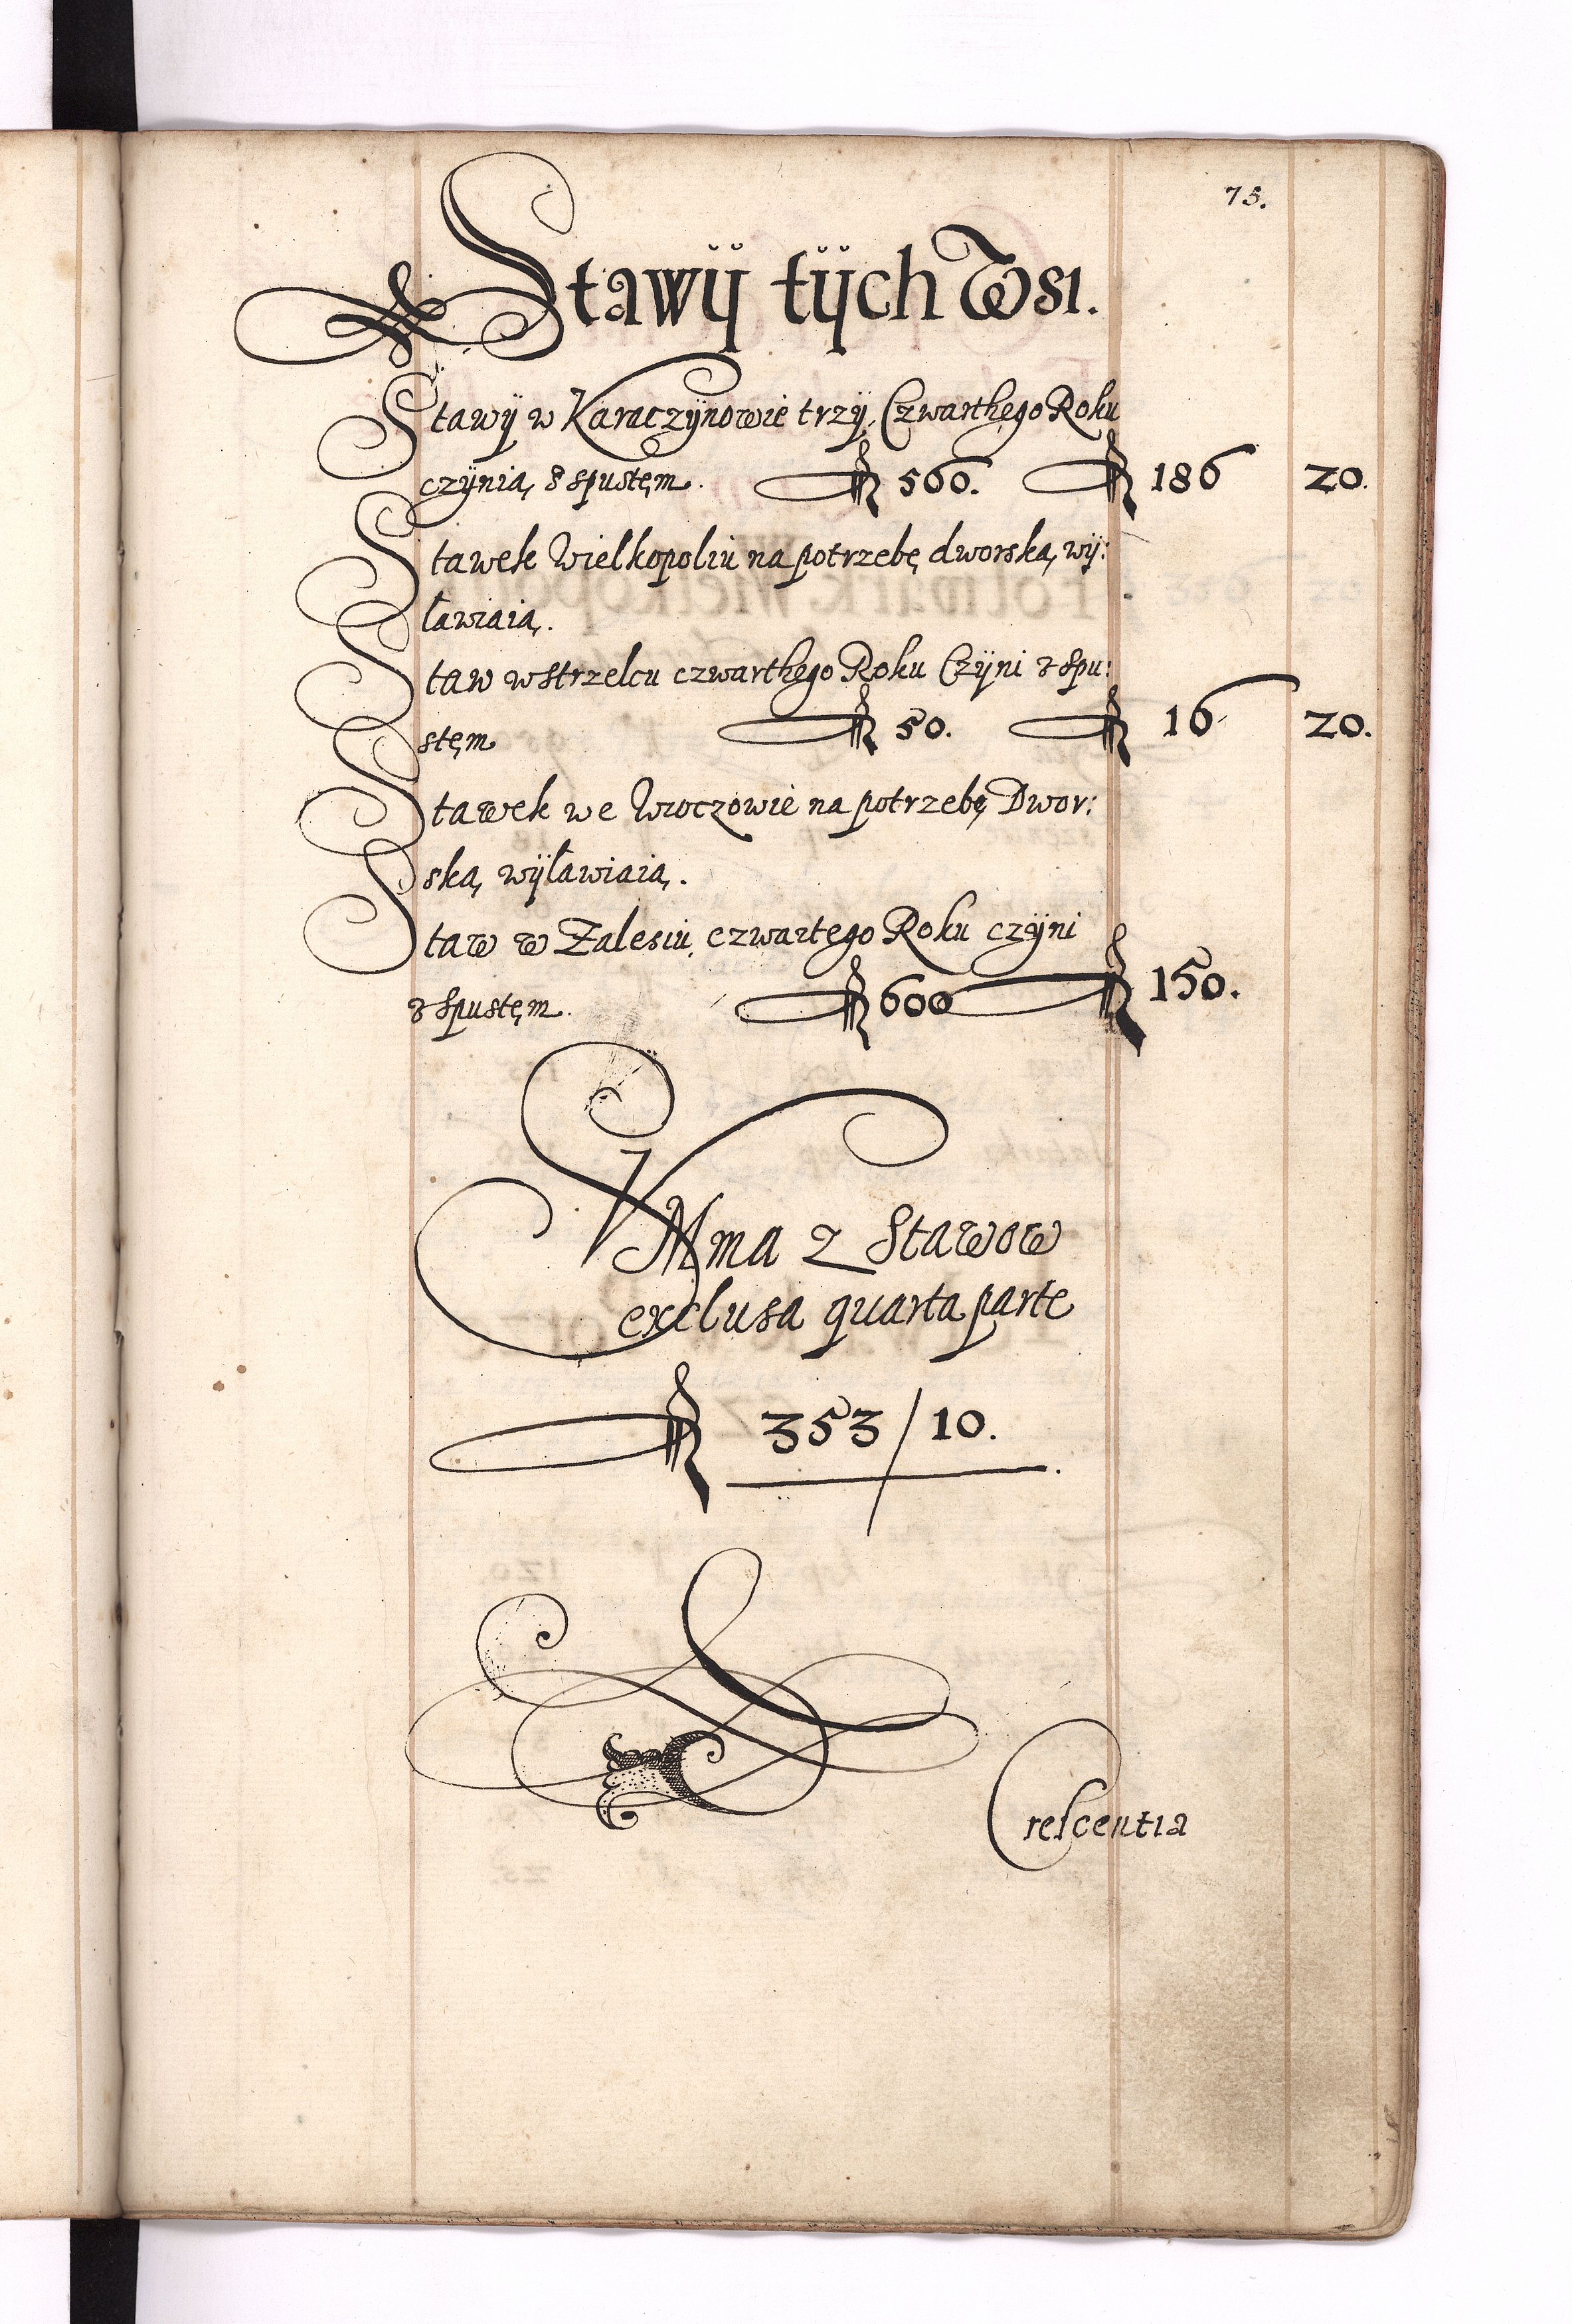 75.
Stawÿ tÿch Wsi.
Stawÿ w Karaczÿnowie trzÿ, Czwarthego Roku
czÿnią z spustęm. fl 560. fl 186 20.
Stawek Wielkopoliu na potrzebę dworską wÿ:
ławiaią.
Staw w Strzelcu czwarthego Roku Czÿni z spu:
stęm fl 50. fl 16 20.
Stawek we Wroczowie na potrzebę Dwor:
ską wÿławiaią.
Staw w Zalesiu czwartego Roku czÿni
z spustęm. fl 600 fl 150.
SVMma z Stawow
exclusa quarta parte
fl 353/10.
Crescentia